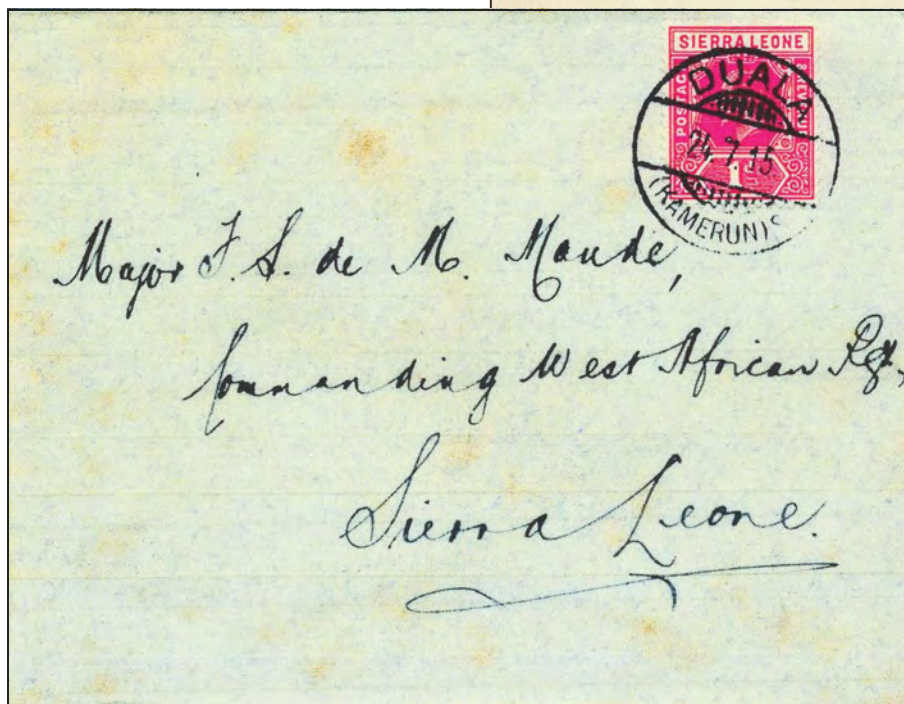 SIERRA LEONE
POSTAGE & REVENUE
1
DUALA
24.7.15.
(KAMERUN)
Major F. S. de M. Maude,
Commanding West African Rgt.,
Sierra Leone.